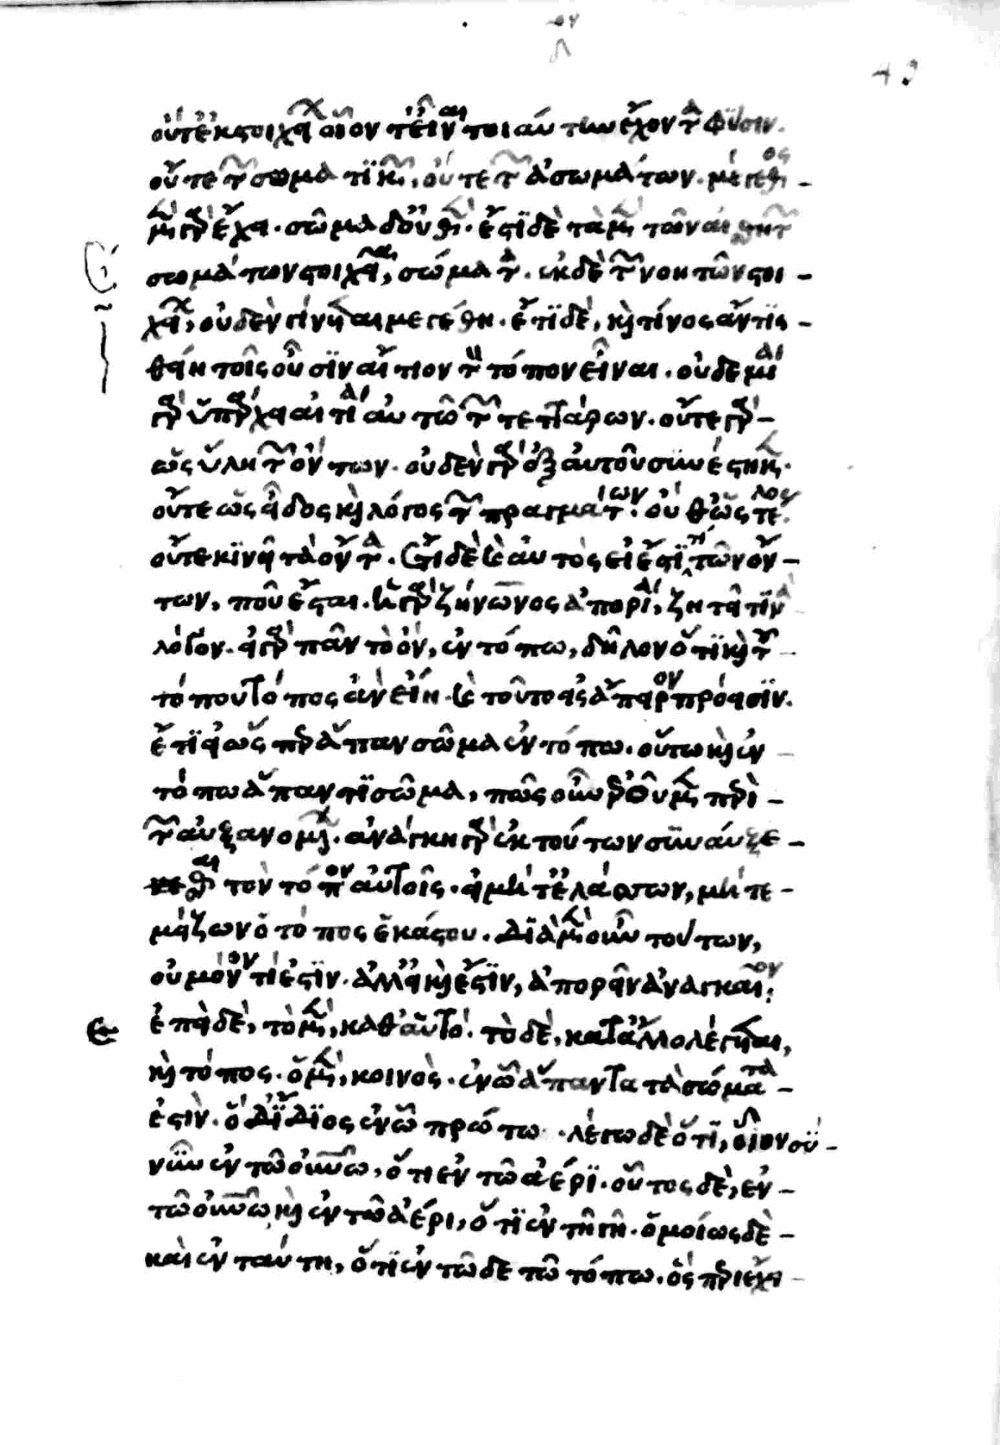 οὔτ' ἐκ στοιχείων οἷόν τε εἶναι τοιαύτην ἔχοντα φύσιν.
οὔτε τῶν σωματικῶν, οὔτε τῶν ἀσωμάτων. μέγεθος
μὲν γὰρ ἔχει. σῶμα δ' οὐθέν. ἔστι δὲ τὰ μὲν τῶν αἰσθητῶν
σωμάτων στοιχεῖα, σώματα. ἐκ δὲ τῶν νοητῶν στοι-
χείων, οὐδὲν γίνεται μέγεθος. ἔτι δὲ, καὶ τίνος ἄν τις
θείη τοῖς οὖσιν αἴτιον τὸν τόπον εἶναι. οὐδεμία
γὰρ ὑπάρχει αἰτία αὐτῷ τῶν τεττάρων. οὔτε γὰρ
ὡς ὕλη τῶν ὄντων. οὐδὲν γὰρ ἐξ αὐτοῦ συνέστηκεν.
οὔτε ὡς εἶδος καὶ λόγος τῶν πραγμάτων. οὔθ' ὡς τέλος
οὔτε κινεῖ τὰ ὄντα. ἔτι δὲ καὶ αὐτὸς εἰ ἔστι τι τῶν ὄν-
των, ποῦ ἔσται. ἡ γὰρ ζήνωνος ἀπορία, ζητεῖ τινὰ
λόγον. εἰ γὰρ πᾶν τὸ ὂν, ἐν τόπω, δῆλον ὅτι καὶ τοῦ
τόπου τόπος ἂν εἴη. καὶ τοῦτο εἰς ἄπειρον πρόεισιν.
ἔτι εἰ ὥσπερ ἅπαν σῶμα ἐν τόπω. οὕτω καὶ ἐν
τόπω ἅπαντι σῶμα, πῶς οὖν ἐροῦμεν περὶ
τῶν αὐξανομένων. ἀνάγκη γὰρ ἐκ τούτων συναύξε-
σθαι τὸν τόπον αὐτοῖς. εἰ μήτε ἐλάττων, μήτε
μείζων ὁ τόπος ἑκάστου. διὰ μὲν οὖν τούτων,
οὐ μόνον τί ἐστιν. ἀλλὰ καὶ εἰ ἔστιν, ἀπορεῖν ἀναγκαῖον:
ἐπεὶ δὲ, τὸ μὲν, καθ' αὑτό. τὸ δὲ, κατ' ἄλλο λέγεται,
καὶ τόπος. ὁ μὲν, κοινὸς. ἐν ᾧ ἅπαντα τὰ σώματα
ἐστὶν. ὁ δ' ἴδιος ἐν ᾧ πρώτω. λέγω δὲ ὅτι, οἷον σὺ
νῦν ἐν τῶ οὐρανῶ, ὅτι ἐν τῶ ἀέρι. οὗτος δὲ, ἐν
τῶ οὐρανῶ καὶ ἐν τῶ ἀέρι, ὅτι ἐν τῆ γῆ. ὁμοίως δὲ
καὶ ἐν ταύτη, ὅτι ἐν τῶδε τῶ τόπω. ὃς περιέχει